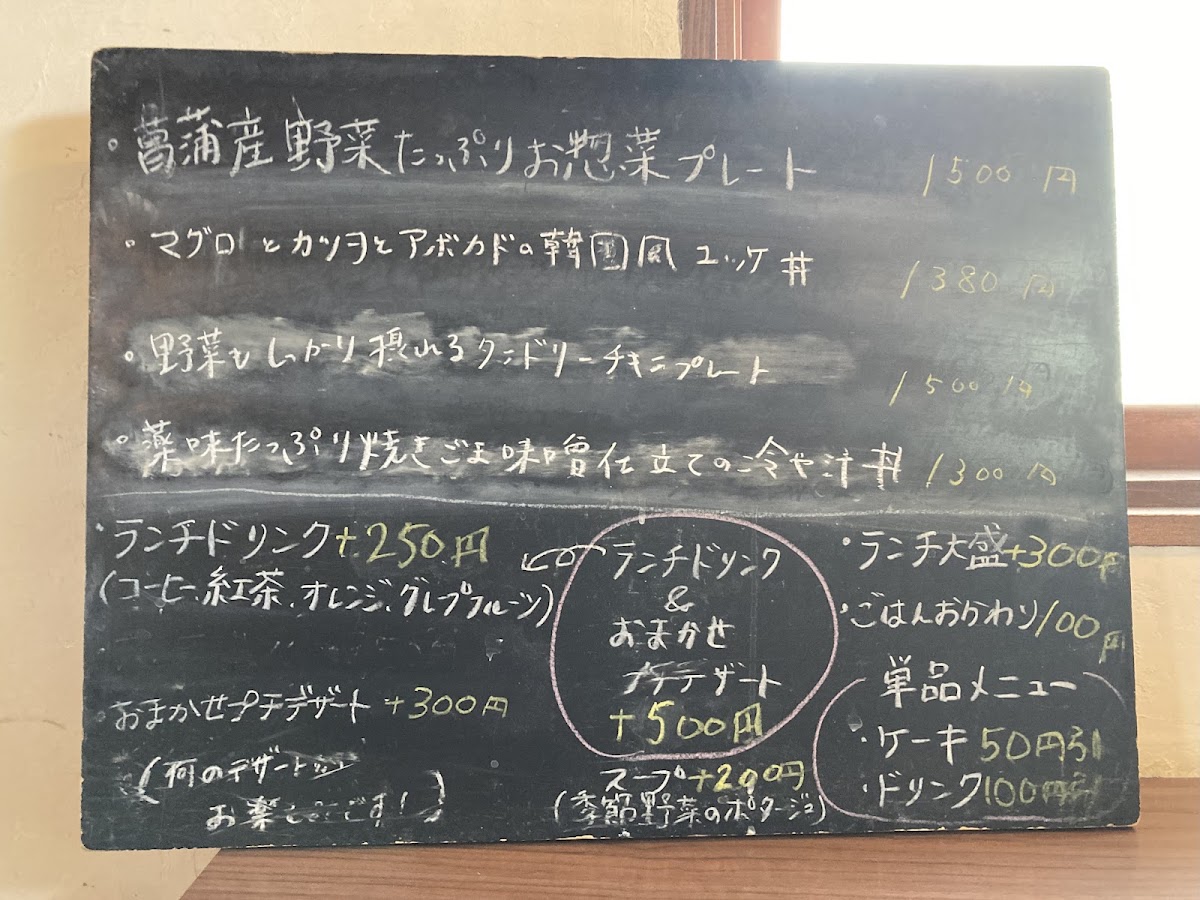 ・菖蒲産野菜たっぷりお惣菜プレート 1500円
・マグロとカツヲとアボカドの韓国風ユッケ丼 1380円
・野菜もしっかり摂れるタンドリーチキンプレート 1500円
・薬味たっぷり焼きごま味噌仕立ての冷や汁丼 1300円
・ランチドリンク+250円
(コーヒー、紅茶、オレンジ、グレープフルーツ)
・おまかせプチデザート+300円
(何のデザートかは
お楽しみです!)
ランチドリンク
&
おまかせ
プチデザート
+500円
スープ+200円
(季節野菜のポタージュ)
・ランチ大盛+300円
・ごはんおかわり100円
単品メニュー
・ケーキ50円引
・ドリンク100円引